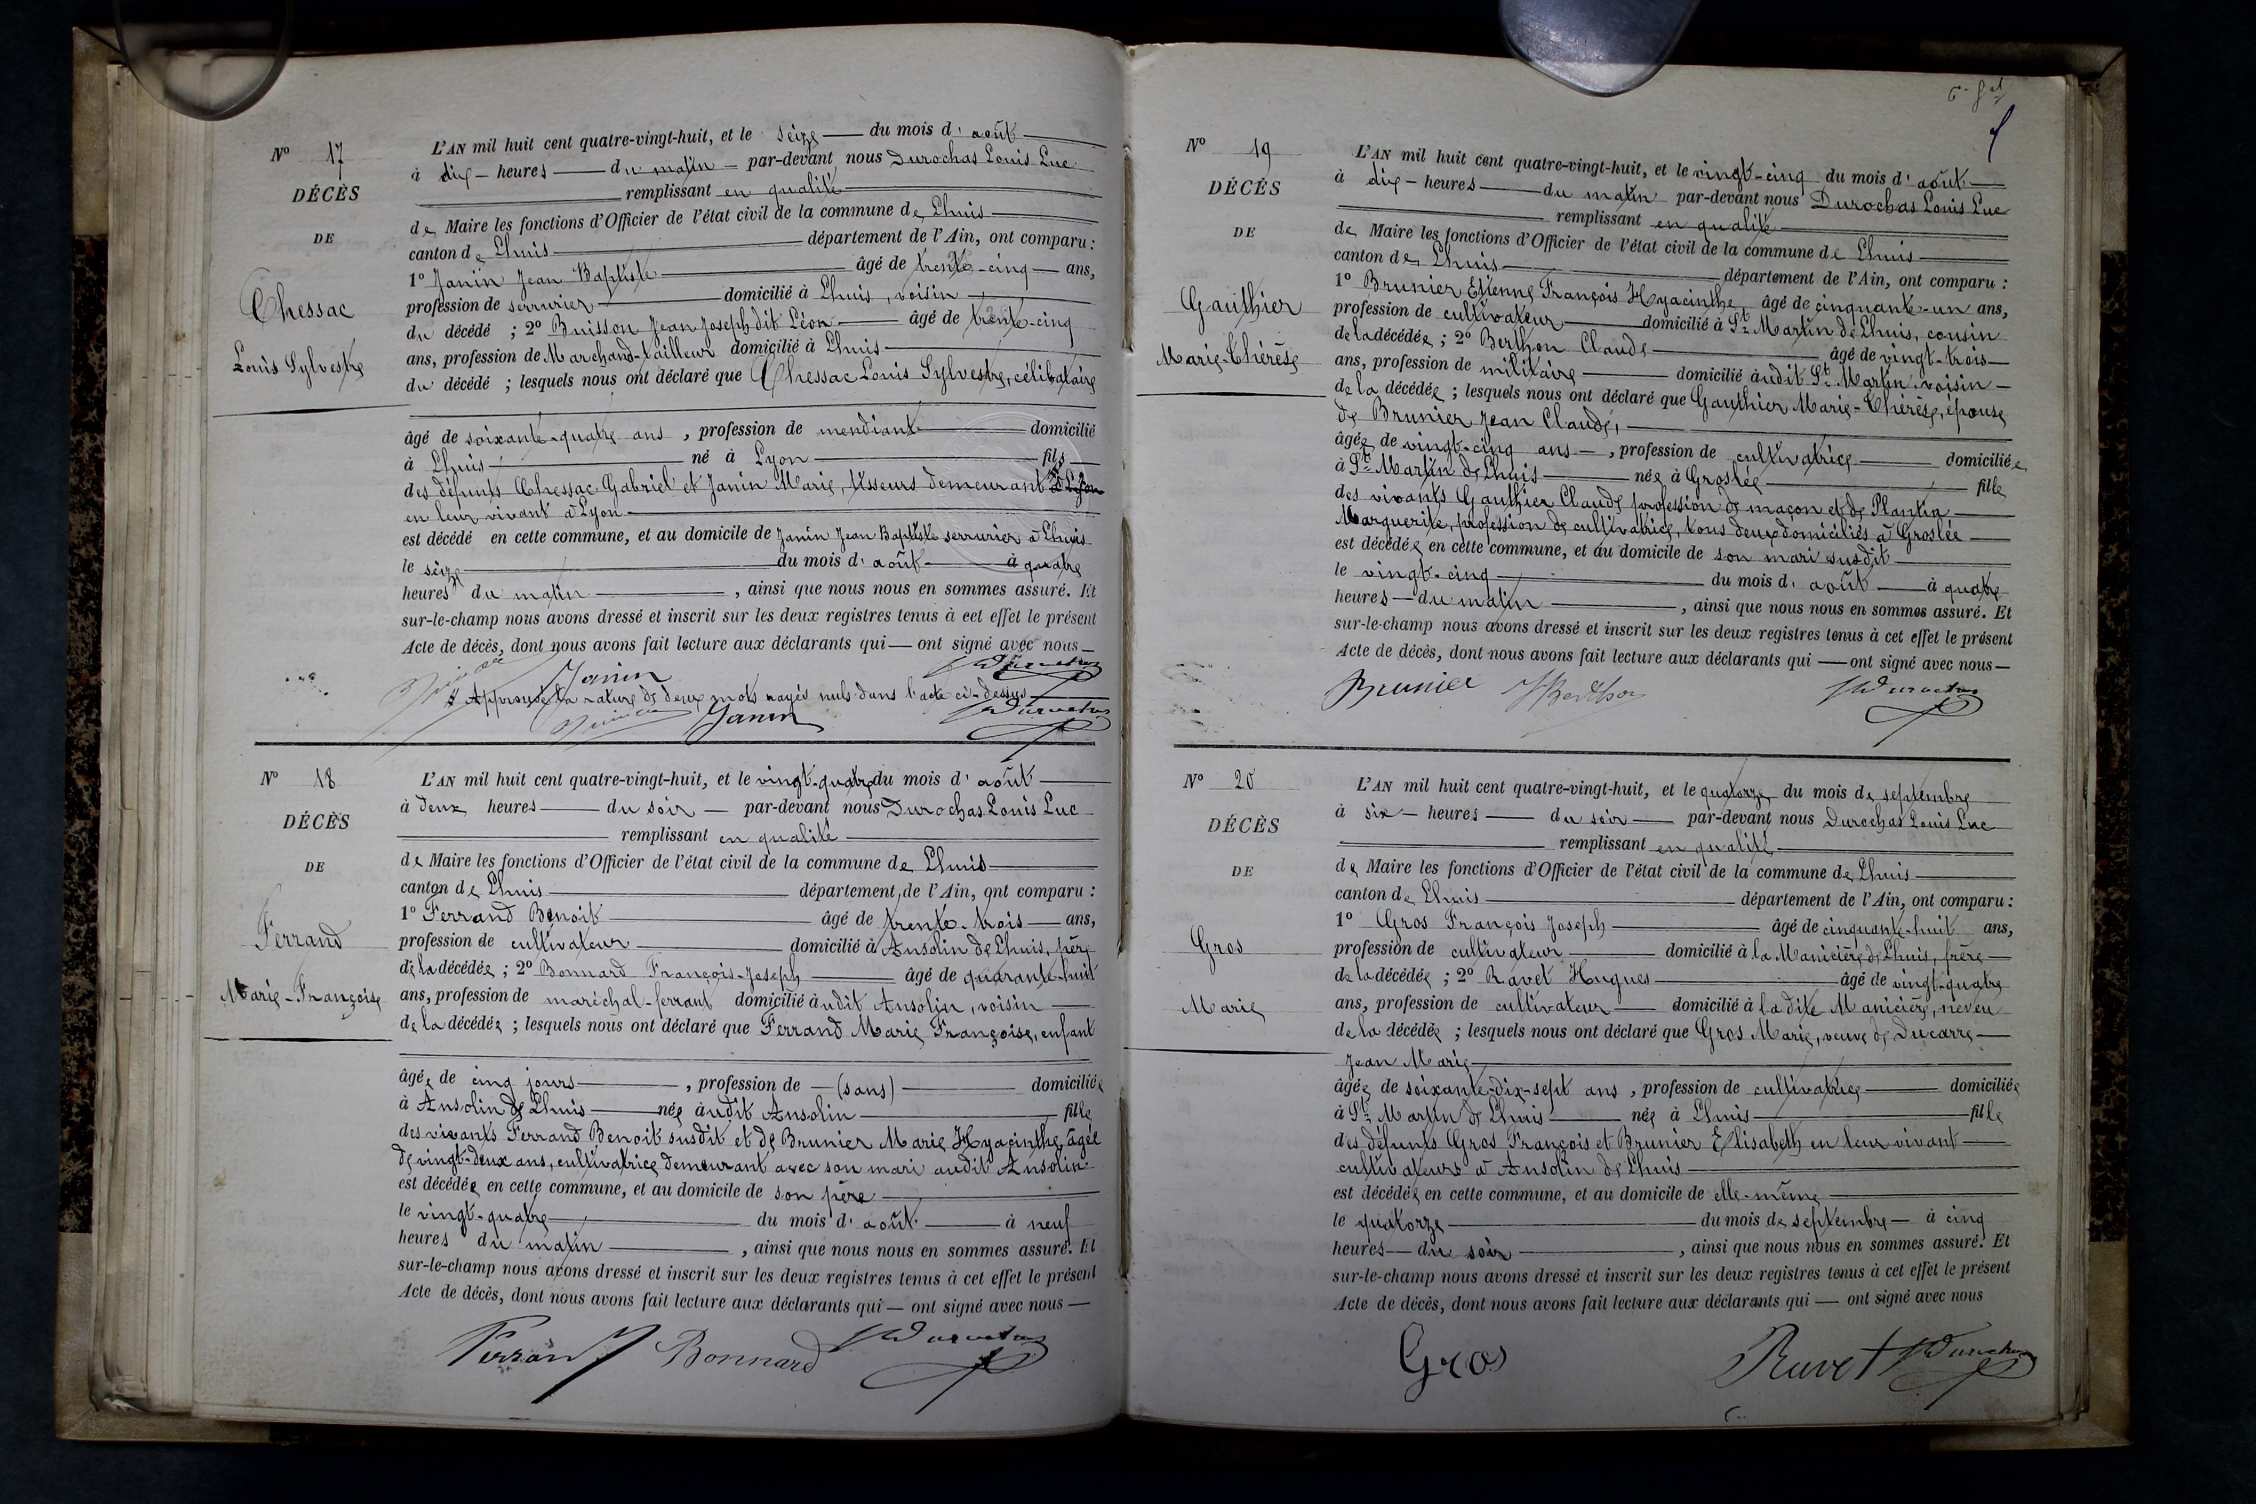 Nº 17
DÉCÈS
DE
Chessac
Louis Sylvestre
L'AN mil huit cent quatre-vingt-huit, et le seize du mois d' août
à dix heures du matin par-devant nous Durochas Louis Luc
remplissant en qualité
de Maire les fonctions d'Officier de l'état civil de la commune de Lhuis
canton de Lhuis département de l'Ain, ont comparu :
1º Janin Jean Baptiste âgé de trente-cinq ans,
profession de serrurier domicilié à Lhuis, voisin
du décédé ; 2º Buisson Jean Joseph dit Léon âgé de trente-cinq
ans, profession de Marchand-tailleur domicilié à Lhuis
du décédé ; lesquels nous ont déclaré que Chessac Louis Sylvestre, célibataire
âgé de soixante-quatre ans , profession de mendiant domicilié
à Lhuis né à Lyon fils
des défunts Chessac Gabriel et Janin Marie, tisseurs demeurant à Lyon
en leur vivant à Lyon
est décédé en cette commune, et au domicile de Janin Jean Baptiste serrurier à Lhuis
le seize du mois d' août à quatre
heures du matin , ainsi que nous nous en sommes assuré. Et
sur-le-champ nous avons dressé et inscrit sur les deux registres tenus à cet effet le présent
Acte de décès, dont nous avons fait lecture aux déclarants qui ont signé avec nous
Janin Durochas
Approuvé la rature de deux mots rayés nuls dans l'acte ci-dessus
Janin Durochas
Nº 18
DÉCÈS
DE
Ferrand
Marie-Françoise
L'AN mil huit cent quatre-vingt-huit, et le vingt-quatre du mois d' août
à deux heures du soir par-devant nous Durochas Louis Luc
remplissant en qualité
de Maire les fonctions d'Officier de l'état civil de la commune de Lhuis
canton de Lhuis département de l'Ain, ont comparu :
1º Ferrand Benoit âgé de trente-trois ans,
profession de cultivateur domicilié à Ansolin de Lhuis, père
de la décédée ; 2º Bonnard François-Joseph âgé de quarante-huit
ans, profession de maréchal-ferrant domicilié àudit Ansolin, voisin
de la décédée ; lesquels nous ont déclaré que Ferrand Marie Françoise, enfant
âgée de cinq jours , profession de (sans) domiciliée
à Ansolin de Lhuis née àudit Ansolin fille
des vivants Ferrand Benoit susdit et de Brunier Marie Hyacinthe, âgée
de vingt-deux ans, cultivatrice demeurant avec son mari audit Ansolin
est décédée en cette commune, et au domicile de son père
le vingt-quatre du mois d' août à neuf
heures du matin , ainsi que nous nous en sommes assuré. Et
sur-le-champ nous avons dressé et inscrit sur les deux registres tenus à cet effet le présent
Acte de décès, dont nous avons fait lecture aux déclarants qui ont signé avec nous
Ferrand Bonnard Durochas
Nº 19
DÉCÈS
DE
Gauthier
Marie-Thérèse
L'AN mil huit cent quatre-vingt-huit, et le vingt-cinq du mois d' août
à dix heures du matin par-devant nous Durochas Louis Luc
remplissant en qualité
de Maire les fonctions d'Officier de l'état civil de la commune de Lhuis
canton de Lhuis département de l'Ain, ont comparu :
1º Brunier Etienne François Hyacinthe âgé de cinquante-un ans,
profession de cultivateur domicilié à St Martin de Lhuis, cousin
de la décédée ; 2º Berthon Claude âgé de vingt-trois
ans, profession de militaire domicilié àudit St Martin voisin
de la décédée ; lesquels nous ont déclaré que Gauthier Marie-Thérèse, épouse
de Brunier Jean Claude,
âgée de vingt-cinq ans , profession de cultivatrice domiciliée
à St Martin de Lhuis née à Groslée fille
des vivants Gauthier Claude profession de maçon et de Plantin
Marguerite, profession de cultivatrice, tous deux domiciliés à Groslée
est décédée en cette commune, et au domicile de son mari susdit
le vingt-cinq du mois d' août à quatre
heures du matin , ainsi que nous nous en sommes assuré. Et
sur-le-champ nous avons dressé et inscrit sur les deux registres tenus à cet effet le présent
Acte de décès, dont nous avons fait lecture aux déclarants qui ont signé avec nous
Brunier Berthon Durochas
Nº 20
DÉCÈS
DE
Gros
Marie
L'AN mil huit cent quatre-vingt-huit, et le quatorze du mois de septembre
à six heures du soir par-devant nous Durochas Louis Luc
remplissant en qualité
de Maire les fonctions d'Officier de l'état civil de la commune de Lhuis
canton de Lhuis département de l'Ain, ont comparu :
1º Gros François Joseph âgé de cinquante-huit ans,
profession de cultivateur domicilié à la Manicière de Lhuis, frère
de la décédée ; 2º Ravet Hugues âgé de vingt-quatre
ans, profession de cultivateur domicilié à la dite Manicière, neveu
de la décédée ; lesquels nous ont déclaré que Gros Marie, veuve de Ducarre
Jean Marie
âgée de soixante-dix-sept ans , profession de cultivatrice domiciliée
à St Martin de Lhuis née à Lhuis fille
des défunts Gros François et Brunier Elisabeth en leur vivant
cultivateurs à Ansolin de Lhuis
est décédée en cette commune, et au domicile de elle-même
le quatorze du mois de septembre à cinq
heures du soir , ainsi que nous nous en sommes assuré. Et
sur-le-champ nous avons dressé et inscrit sur les deux registres tenus à cet effet le présent
Acte de décès, dont nous avons fait lecture aux déclarants qui ont signé avec nous
Gros Ravet Durochas